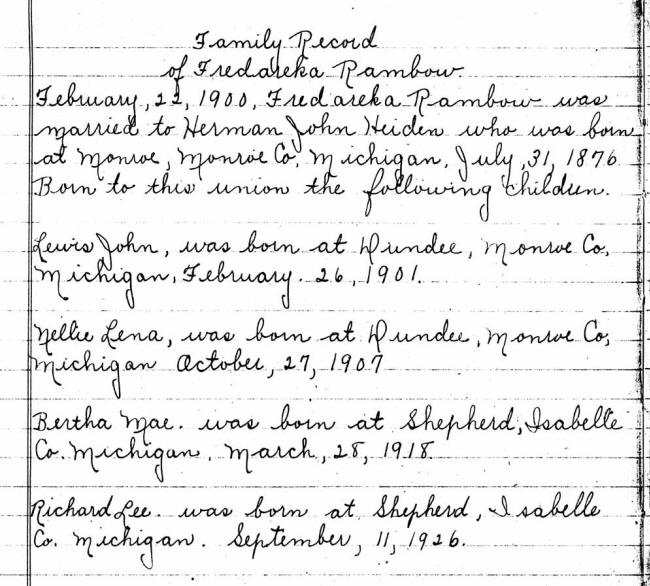 Family Record
of Fredareka Rambow.
February, 22, 1900, Fredareka Rambow was
married to Herman John Heiden who was born
at Monroe, Monroe Co, Michigan, July, 31, 1876
Born to this union the following children.
Lewis John, was born at Dundee, Monroe Co,
Michigan, February. 26, 1901.
Nellie Lena, was born at Dundee, Monroe Co,
Michigan October, 27, 1907
Bertha Mae. was born at Shepherd, Isabelle
Co. Michigan. March, 28, 1918.
Richard Lee. was born at Shepherd, Isabelle
Co. Michigan. September, 11, 1926.